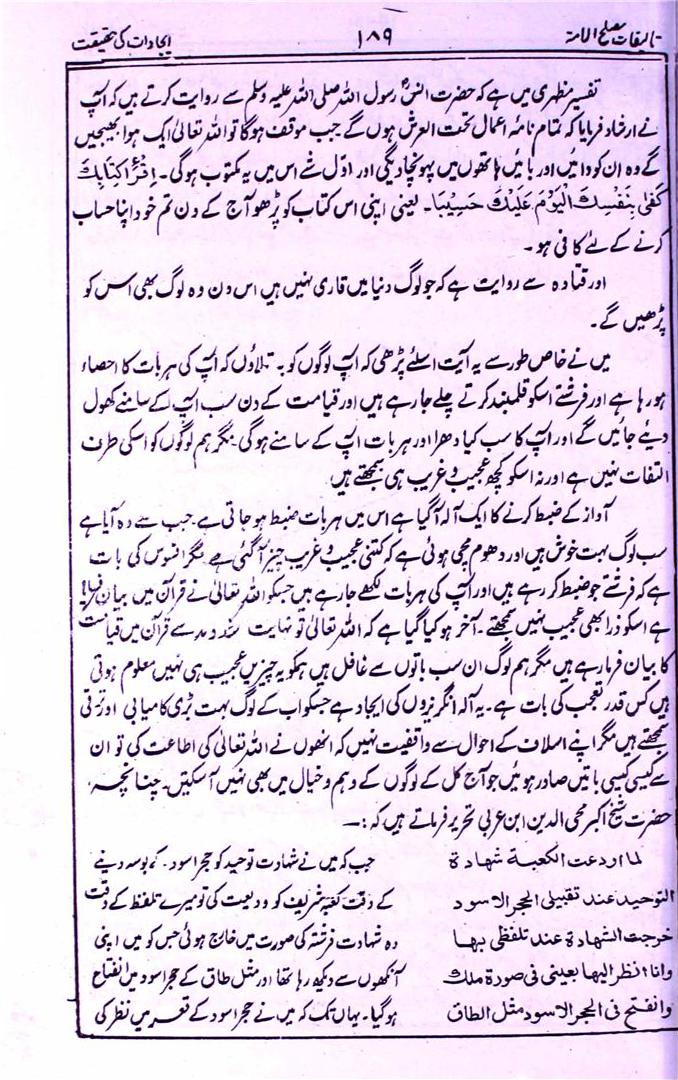 تالیفات مصلح الامۃ
۱۸۹
ایجادات کی حقیقت
تفسیر مظہری میں ہے کہ حضرت انسؓ رسول اللہ صلی اللہ علیہ وسلم سے روایت کرتے ہیں کہ آپ
نے ارشاد فرمایا کہ تمام نامہ اعمال تحت العرش ہوں گے جب موقف ہوگا تو اللہ تعالیٰ ایک ہوا بھیجیں
گے وہ ان کو دائیں اور بائیں ہاتھوں میں پہونچا دیگی اور اوّل شے اس میں یہ مکتوب ہوگی۔ اِقْرَأْ كِتَابَكَ
كَفٰى بِنَفْسِكَ الْيَوْمَ عَلَيْكَ حَسِيْبًا۔ یعنی اپنی اس کتاب کو پڑھو آج کے دن تم خود اپنا حساب
کرنے کے لئے کافی ہو۔
اور قتادہ سے روایت ہے کہ جو لوگ دنیا میں قاری نہیں ہیں اس دن وہ لوگ بھی اس کو
پڑھیں گے۔
میں نے خاص طور سے یہ آیت اسلئے پڑھی کہ آپ لوگوں کو یہ بتلاؤں کہ آپ کی ہر بات کا احصاء
ہو رہا ہے اور فرشتے اسکو قلمبند کرتے چلے جا رہے ہیں اور قیامت کے دن سب آپ کے سامنے کھول
دیئے جائیں گے اور آپ کا سب کیا دھرا اور ہر بات آپ کے سامنے ہوگی۔ مگر ہم لوگوں کو اسکی طرف
التفات نہیں ہے اور نہ اسکو کچھ عجیب و غریب ہی سمجھتے ہیں
آواز کے ضبط کرنے کا ایک آلہ آگیا ہے اس میں ہر بات ضبط ہو جاتی ہے۔ جب سے وہ آیا ہے
سب لوگ بہت خوش ہیں اور دھوم مچی ہوئی ہے کہ کتنی عجیب و غریب چیز آگئی ہے مگر افسوس کی بات
ہے کہ فرشتے جو ضبط کر رہے ہیں اور آپ کی ہر بات لکھے جا رہے ہیں جسکو اللہ تعالیٰ نے قرآن میں بیان فرمایا
ہے اسکو ذرا بھی عجیب نہیں سمجھتے۔ آخر ہو کیا گیا ہے کہ اللہ تعالیٰ تو نہایت شد و مد سے قرآن میں قیامت
کا بیان فرما رہے ہیں مگر ہم لوگ ان سب باتوں سے غافل ہیں ہمکو یہ چیزیں عجیب ہی نہیں معلوم ہوتی
ہیں کس قدر تعجب کی بات ہے۔ یہ آلہ انگریزوں کی ایجاد ہے جسکو اب کے لوگ بہت بڑی کامیابی اور ترقی
سمجھتے ہیں مگر اپنے اسلاف کے احوال سے واقفیت نہیں کہ انھوں نے اللہ تعالیٰ کی اطاعت کی تو ان
سے کیسی کیسی باتیں صادر ہوئیں جو آج کل کے لوگوں کے وہم و خیال میں بھی نہیں آسکتیں۔ چنانچہ
حضرت شیخ اکبر محی الدین ابن عربی تحریر فرماتے ہیں کہ :۔
لما اودعت الکعبة شھادة
التوحید عند تقبیلی الحجر الاسود
خرجت الشھادة عند تلفظی بھا
وانا انظر الیھا بعینی فی صورة ملک
وانفتح فی الحجر الاسود مثل الطاق
جب کہ میں نے شہادت توحید کو حجر اسود کو بوسہ دینے
کے وقت کعبہ شریف کو ودیعت کی تو میرے تلفظ کے وقت
وہ شہادت فرشتہ کی صورت میں خارج ہوئی جس کو میں اپنی
آنکھوں سے دیکھ رہا تھا اور مثل طاق کے حجر اسود میں انفتاح
ہوگیا۔ یہاں تک کہ میں نے حجر اسود کے قعر میں نظر کی